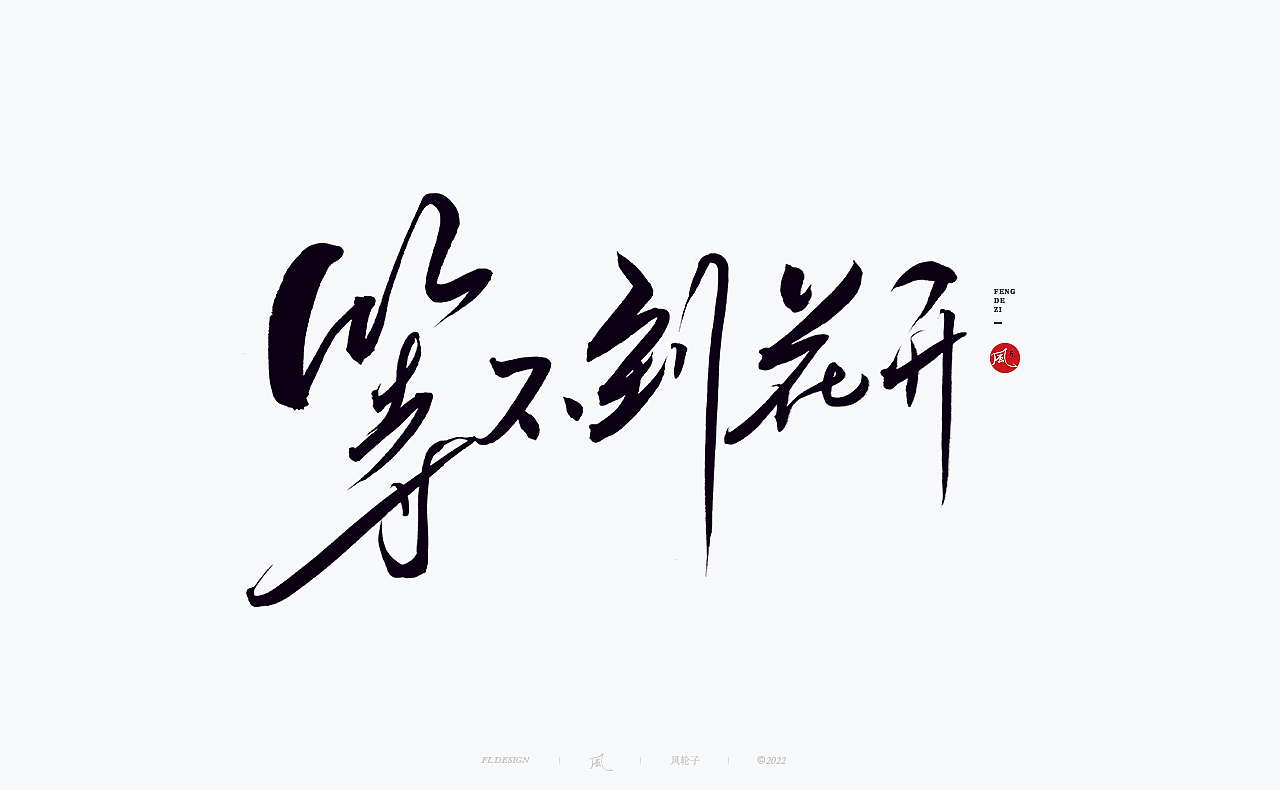 等不到花开
FENG
DE
ZI
風
FL DESIGN
風
风轮子
©2022